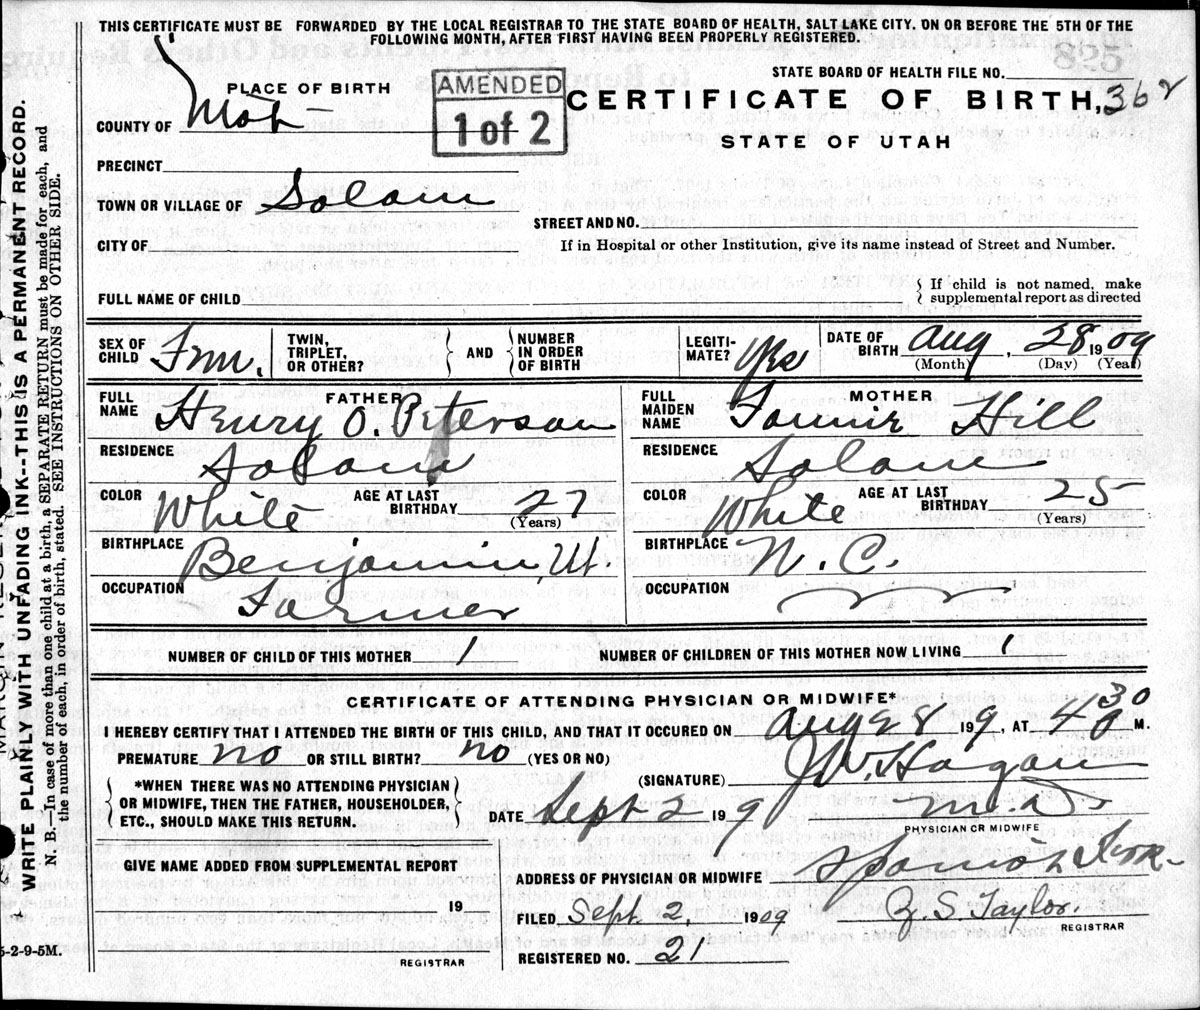 THIS CERTIFICATE MUST BE FORWARDED BY THE LOCAL REGISTRAR TO THE STATE BOARD OF HEALTH, SALT LAKE CITY. ON OR BEFORE THE 5TH OF THE
FOLLOWING MONTH, AFTER FIRST HAVING BEEN PROPERLY REGISTERED.
STATE BOARD OF HEALTH FILE NO.
PLACE OF BIRTH
AMENDED
1 of 2
CERTIFICATE OF BIRTH, 362
COUNTY OF
STATE OF UTAH
PRECINCT
TOWN OR VILLAGE OF Salem
STREET AND NO.
CITY OF
If in Hospital or other Institution, give its name instead of Street and Number.
FULL NAME OF CHILD
If child is not named, make
supplemental report as directed
SEX OF CHILD Fem. TWIN, TRIPLET, OR OTHER? AND NUMBER IN ORDER OF BIRTH LEGITI-MATE? Yes DATE OF BIRTH Aug, 28 1909
(Month) (Day) (Year)
FATHER
FULL NAME Henry O. Peterson
RESIDENCE Salem
COLOR White AGE AT LAST BIRTHDAY 27
(Years)
BIRTHPLACE Benjamin, Ut.
OCCUPATION Farmer
MOTHER
FULL MAIDEN NAME Fannie Hill
RESIDENCE Salem
COLOR White AGE AT LAST BIRTHDAY 25
(Years)
BIRTHPLACE N. C.
OCCUPATION
NUMBER OF CHILD OF THIS MOTHER 1 NUMBER OF CHILDREN OF THIS MOTHER NOW LIVING 1
CERTIFICATE OF ATTENDING PHYSICIAN OR MIDWIFE*
I HEREBY CERTIFY THAT I ATTENDED THE BIRTH OF THIS CHILD, AND THAT IT OCCURED ON Aug 28 19 9, AT 4 30 M.
PREMATURE no OR STILL BIRTH? no (YES OR NO)
(SIGNATURE) J W. Hagan
*WHEN THERE WAS NO ATTENDING PHYSICIAN
OR MIDWIFE, THEN THE FATHER, HOUSEHOLDER,
ETC., SHOULD MAKE THIS RETURN.
DATE Sept 2 19 9 M.D.
PHYSICIAN OR MIDWIFE
GIVE NAME ADDED FROM SUPPLEMENTAL REPORT
19
REGISTRAR
ADDRESS OF PHYSICIAN OR MIDWIFE Spanish Fork
FILED Sept. 2, 1909 Z. S. Taylor.
REGISTRAR
REGISTERED NO. 21
WRITE PLAIN WITH UNFADING INK--THIS IS A PERMANENT RECORD.
N. B.—In case of more than one child at a birth, a SEPARATE RETURN must be made for each, and
the number of each, in order of birth, stated. SEE INSTRUCTIONS ON OTHER SIDE.
5-2-9-5M.